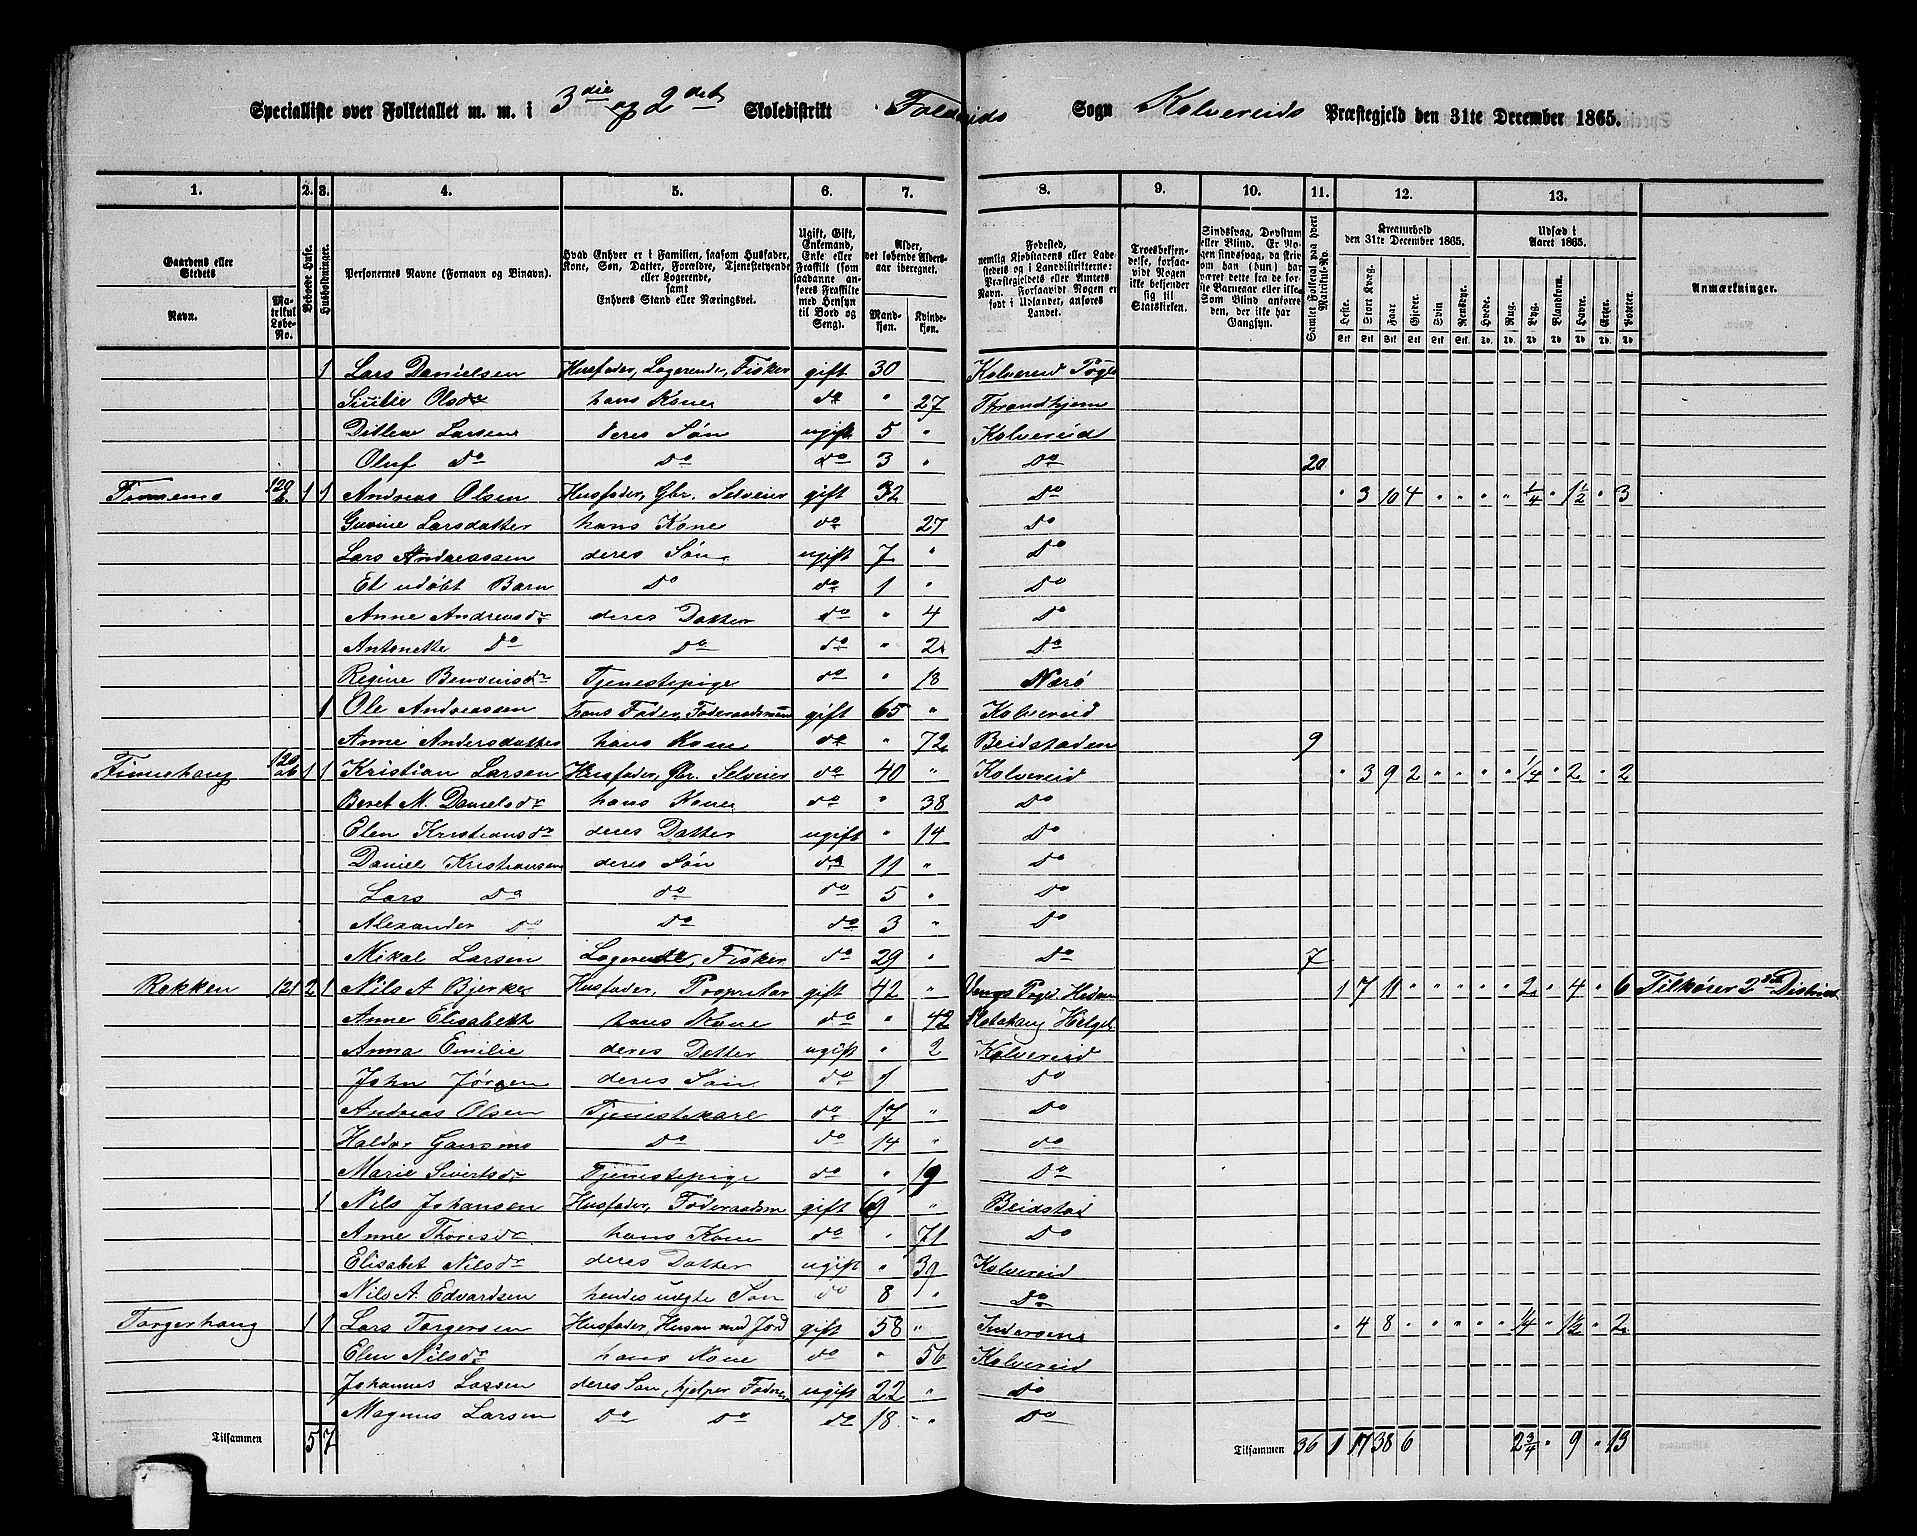 Specialliste over Folketallet m. m. i 3die og 2det Skoledistrikt Foldereids Sogn Kolvereids Præstegjeld den 31te December 1865.
1. 2. 3. 4. 5. 6. 7. 8. 9. 10. 11. 12. 13.
Gaardens eller Stedets Navn. Matrikul Løbe-No. Beboede Huse. Husholdninger. Personernes Navne (Fornavn og Binavn). Hvad Enhver er i Familien, saasom Husfader, Kone, Søn, Datter, Forældre, Tjenestetyende eller Logerende, samt Enhvers Stand eller Næringsvei. Ugift, Gift, Enkemand, Enke eller Fraskilt (som saadanne anføres Fraskilte med Hensyn til Bord og Seng). Alder, det løbende Aldersaar iberegnet. Mandkjøn. Kvindekjøn.
Fødested, nemlig Kjøbstadens eller Ladestedets og i Landdistrikterne: Præstegjeldets eller Amtets Navn. Forsaavidt Nogen er født i Udlandet, anføres Landet. Troesbekjendelse, forsaavidt Nogen ikke bekjender sig til Statskirken. Sindssvag, Døvstum eller Blind. Er Nogen sindssvag, da skrives om han (hun) har været dette fra de første Barneaar eller ikke. Som Blind anføres den, der ikke har Gangsyn. Samlet Folketal paa hvert Matrikul-No. Kreaturhold den 31te December 1865. Udsæd i Aaret 1865. Anmærkninger.
Heste. Stort Kvæg. Faar Gjeder. Svin Rensdyr. Hvede. Rug. Byg. Blandkorn. Havre. Erter. Poteter.
1 Lars Danielsen Husfader, Logerende, Fisker gift 30 Kolvereid Pgld
Olsdr hans Kone do " 27 Throndhjem
Ditlew Larsen deres Søn ugift 5 " Kolvereid
Oluf do do do 3 " Do 20
Finnemo 120 b 1 1 Andreas Olsen Husfader, Gbr. Selveier gift 32 Do " 3 10 4 " " " " 1/4 " 1 1/2 " 3
Guvine Larsdatter hans Kone do 27 Do
Lars Andreassen deres Søn ugift 7 " Do
Et udøbt Barn do do 1 " Do
Anne Andreasdr deres Datter do " 4 Do
Antonette Do do do " 2 Do
Regine Tjenestepige do " 18 Nærø
1 Ole Andreassen hans Fader, Føderaadsmand gift 65 " Kolvereid
Anne Andersdatter hans Kone do " 72 Beidstaden 9
Finnehaug 120 ab 1 1 Kristian Larsen Husfader, Gbr. Selveier do 40 " Kolvereid " 3 9 2 " " " " 1/4 " 2 " 2
Beret M. Danielsdr hans Kone do " 38 Do
Elen Kristiansdr deres Datter ugift " 14 Do
Daniel Kristiansen deres Søn do 11 " Do
Lars Do do do 5 " Do
Alexander Do do do 3 " Do
Mikal Larsen Logerende, Fisker do 29 " Do 7
Rokken 121 2 1 Nils A Bjerke Husfader, Proprietær gift 42 " Vangs Pgld Hedem 1 7 11 " " " " " 2 " 4 " 6 Tilhører 2det District
Anne Elisabeth hans Kone do " 42 Helgel
Anna Emilie deres Datter ugift " 2 Kolvereid
John Jørgen deres Søn do 1 Do
Andreas Olsen Tjenestekarl do 17 " Do
Haldor do do 14 " do
Marie Sivertsdr Tjenestepige do " 19 Do
1 Nils Johansen Husfader, Føderaadsm gift 69 " Beidstad
Anne Thoresdr hans Kone do " 71 Do
Elisabet Nilsdr deres Datter ugift " 39 Kolvereid
Nils A. Edvardsen hendes uægte Søn do 8 " Do
Torgerhaug 1 1 Lars Torgersen Husfader, Husm med Jord gift 58 " Inderøen " 4 8 " " " " " 1/4 " 1 1/2 " 2
Elen Nilsdr hans Kone do " 56 Kolvereid
Johannes Larsen deres Søn, hjelper Faderen ugift 22 " Do
Magnus Larsen Do Do do 18 " Do
Tilsammen 5 7 Tilsammen 36 1 17 38 6 2 3/4 " 9 " 13